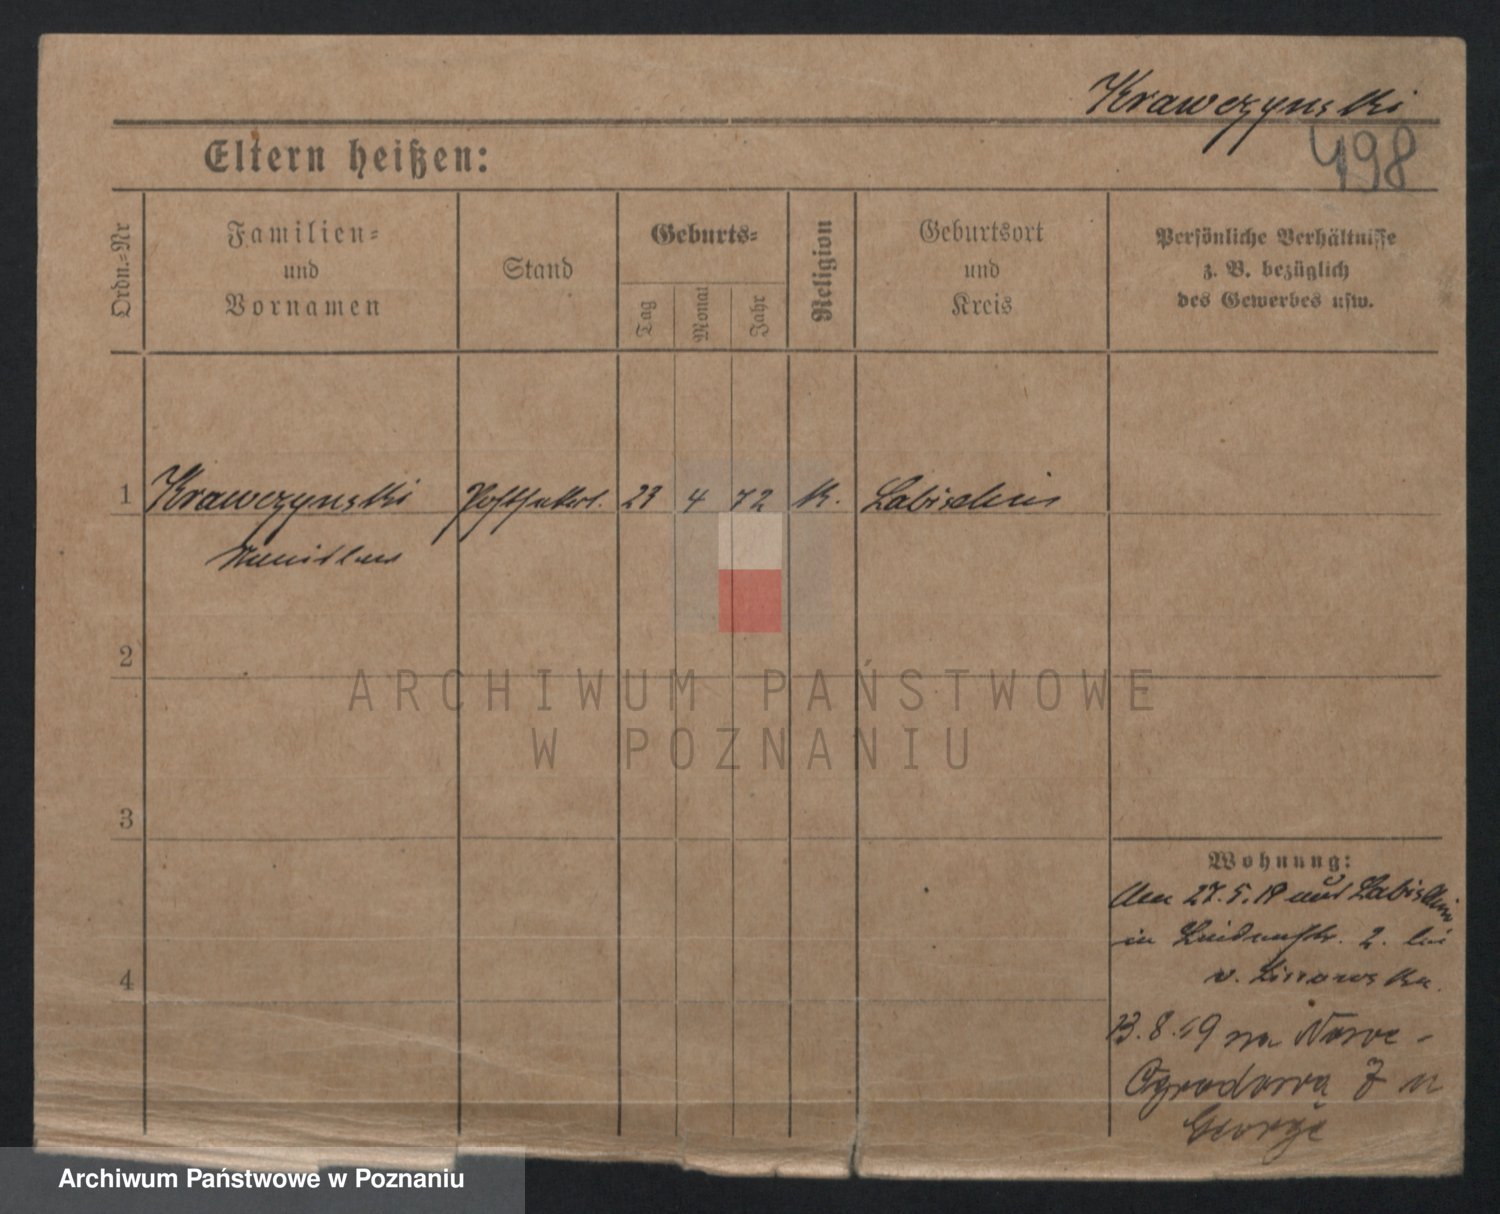 Krawczynski
498
Eltern heißen:
Ordn.-Nr
Familien-
und
Vornamen
Stand
Geburts-
Tag
Monat
Jahr
Religion
Geburtsort
und
Kreis
Persönliche Verhältnisse
z. B. bezüglich
des Gewerbes usw.
1
Krawczynski
23 4 72 K. Labischin
2
3
4
Wohnung:
27.5.19 aus Labischin
in Lindenstr. 2. bei
v.
13.8.19 na Nowe-
Ogrodową 7 u
George
ARCHIWUM PAŃSTWOWE
W POZNANIU
Archiwum Państwowe w Poznaniu